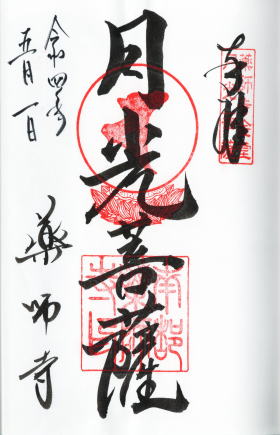 奉拝
月光菩薩
令和四年
五月一日
薬師寺